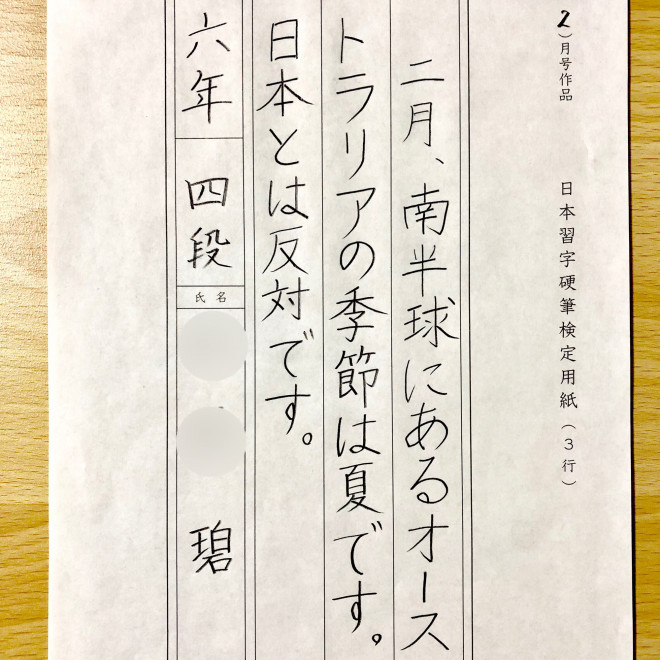 2）月号作品
日本習字硬筆検定用紙（３行）
二月、南半球にあるオース
トラリアの季節は夏です。
日本とは反対です。
六年
四段
氏名
碧